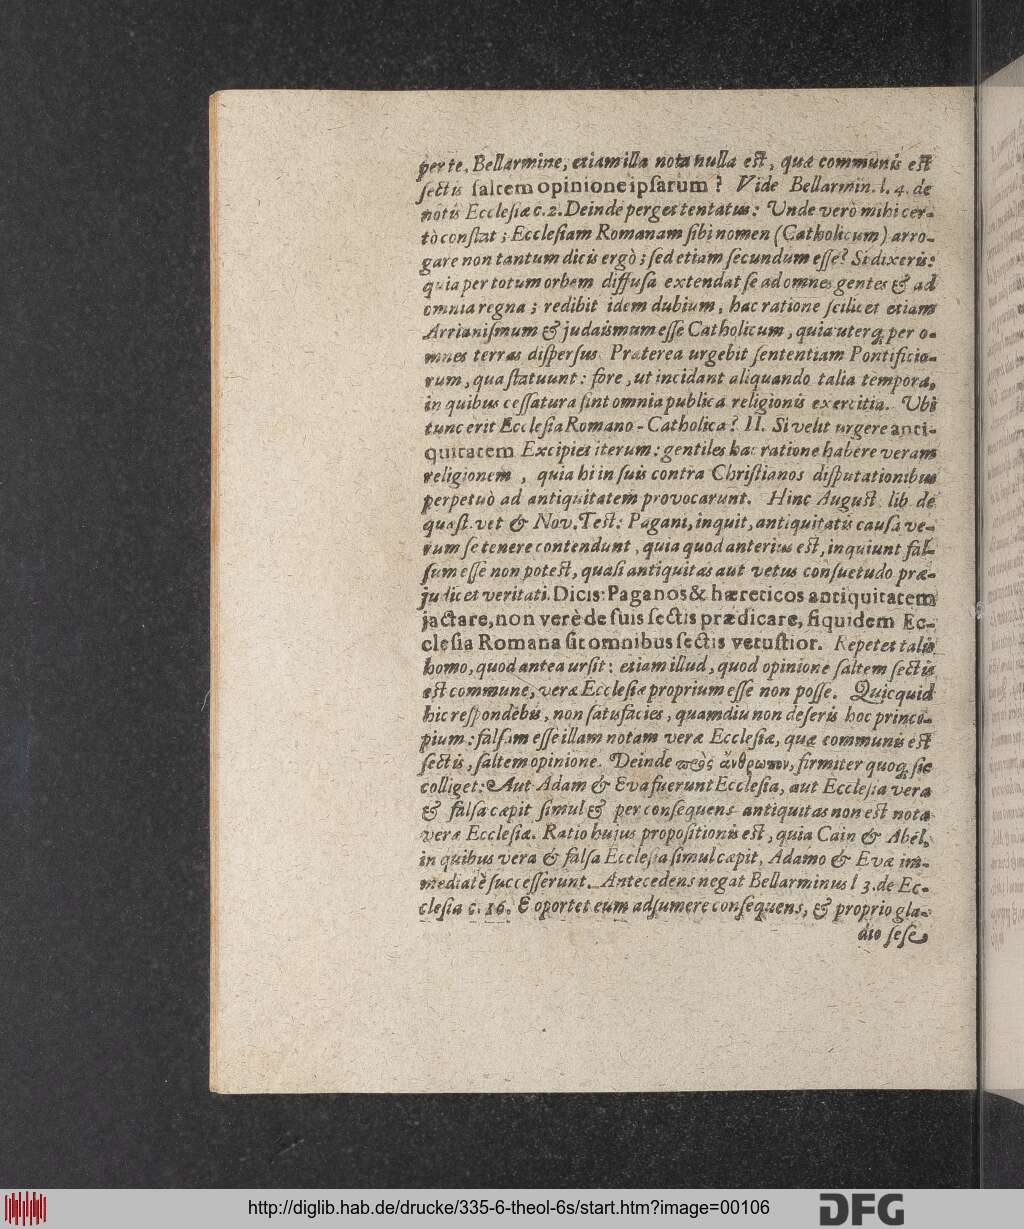 per te, Bellarmine, etiam illa nota nulla est, quæ communis est
sectis saltem opinione ipsarum? Vide Bellarmin. l. 4. de
notis Ecclesiæ c. 2. Deinde perget tentatus: Unde verò mihi cer-
tò constat; Ecclesiam Romanam sibi nomen (Catholicum) arro-
gare non tantum dicis ergò; sed etiam secundum esse? Si dixeris:
quia per totum orbem diffusa extendat se ad omnes gentes & ad
omnia regna; redibit idem dubium, hac ratione scilicet etiam
Arrianismum & judaismum esse Catholicum, quia uterq; per o-
mnes terras dispersus. Præterea urgebit sententiam Pontificio-
rum, qua statuunt: fore, ut incidant aliquando talia tempora,
in quibus cessatura sint omnia publica religionis exercitia. Ubi
tunc erit Ecclesia Romano-Catholica? II. Si velit urgere anti-
quitatem Excipiet iterum: gentiles hac ratione habere veram
religionem, quia hi in suis contra Christianos disputationibus
perpetuò ad antiquitatem provocarunt. Hinc August. lib. de
quæst. vet & Nov. Test: Pagani, inquit, antiquitatis causa ve-
rum se tenere contendunt, quia quod anterius est, inquiunt fal-
sum esse non potest, quasi antiquitas aut vetus consuetudo præ-
judicet veritati. Dicis: Paganos & hæreticos antiquitatem
jactare, non verè de suis sectis prædicare, siquidem Ec-
clesia Romana sit omnibus sectis vetustior. Repetet talis
homo, quod antea ursit: etiam illud, quod opinione saltem sectis
est commune, veræ Ecclesiæ proprium esse non posse. Quicquid
hic respondebis, non satisfacies, quamdiu non deseris hoc princi-
pium: falsam esse illam notam veræ Ecclesiæ, quæ communis est
sectis, saltem opinione. Deinde πρὸς ἄνθρωπον, firmiter quoq; sic
colliget: Aut Adam & Eva fuerunt Ecclesia, aut Ecclesia vera
& falsa cæpit simul & per consequens antiquitas non est nota
veræ Ecclesiæ. Ratio hujus propositionis est, quia Cain & Abel,
in quibus vera & falsa Ecclesia simul cæpit, Adamo & Evæ im-
mediatè successerunt. Antecedens negat Bellarminus l 3. de Ec-
clesia c. 16. E oportet eum adsumere consequens, & proprio gla-
dio sese
http://diglib.hab.de/drucke/335-6-theol-6s/start.htm?image=00106
DFG